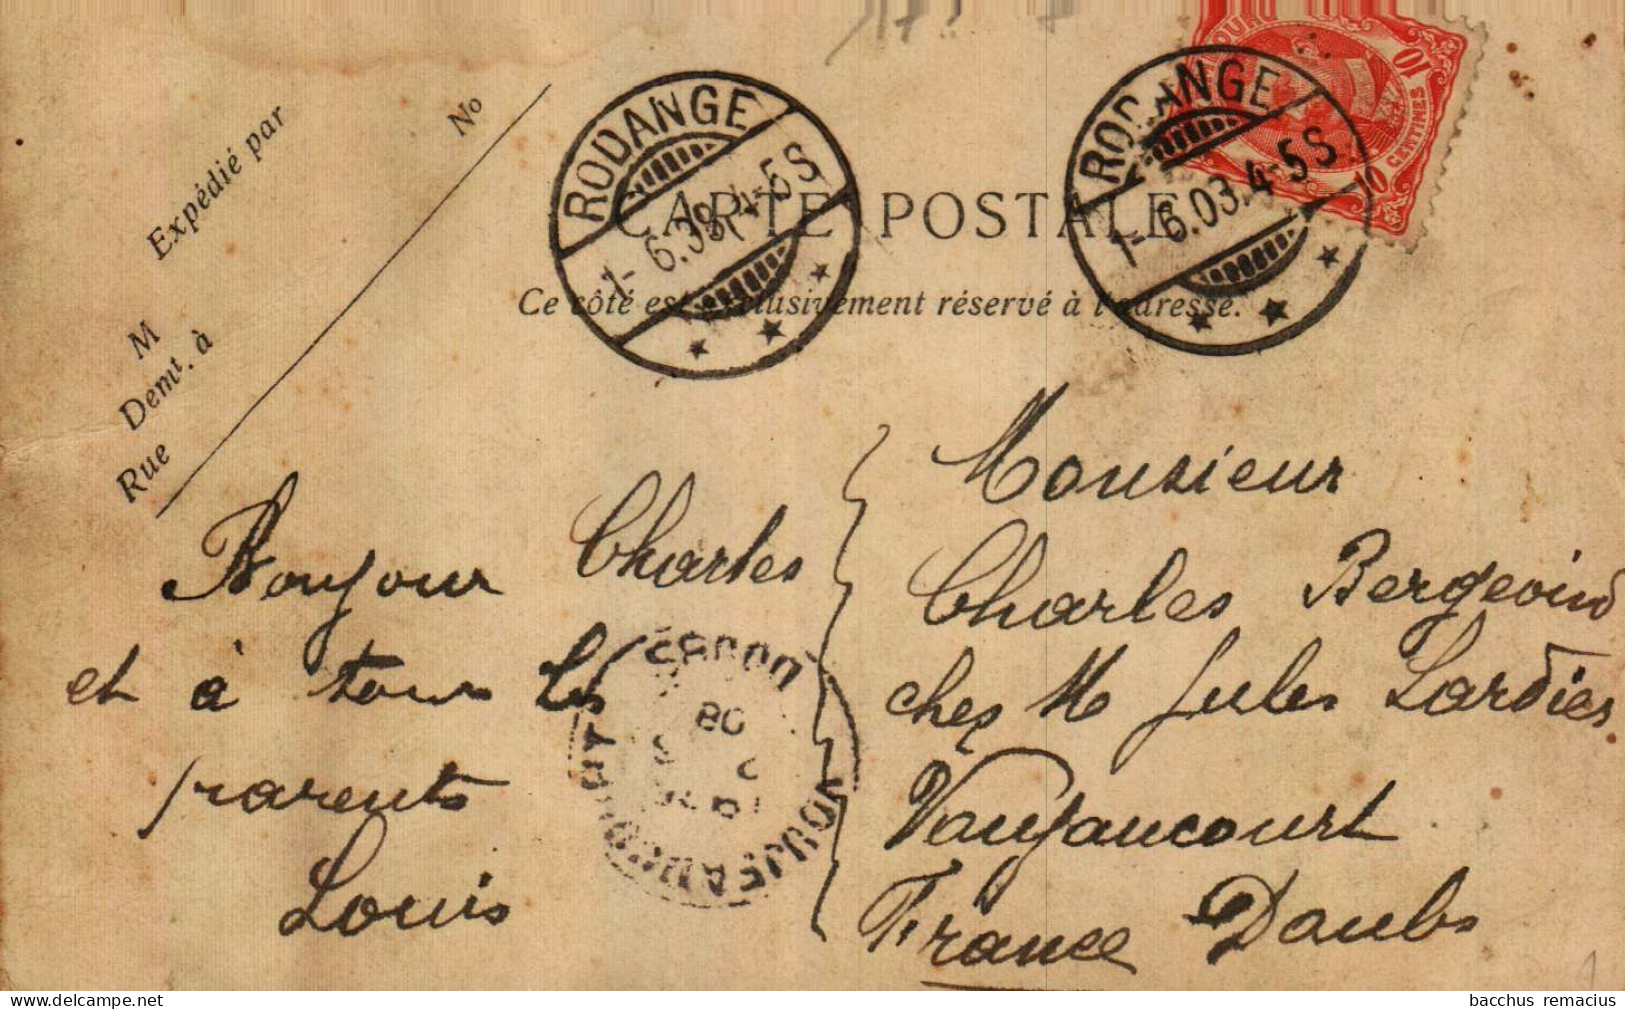 17
Expédié par
No
M
Demt. à
Rue
CARTE POSTALE
Ce côté est exclusivement réservé à l'adresse.
RODANGE
1-6.03 4-5S
RODANGE
1-6.03 4-5S
10
CENTIMES
10
Bonjour Charles
et à tous les
parents
Louis
Monsieur
Charles Bergeoind
chez M Jules Lardier
Vaujaucourt
France Doubs
VOUJEAUCOURT
bacchus remacius